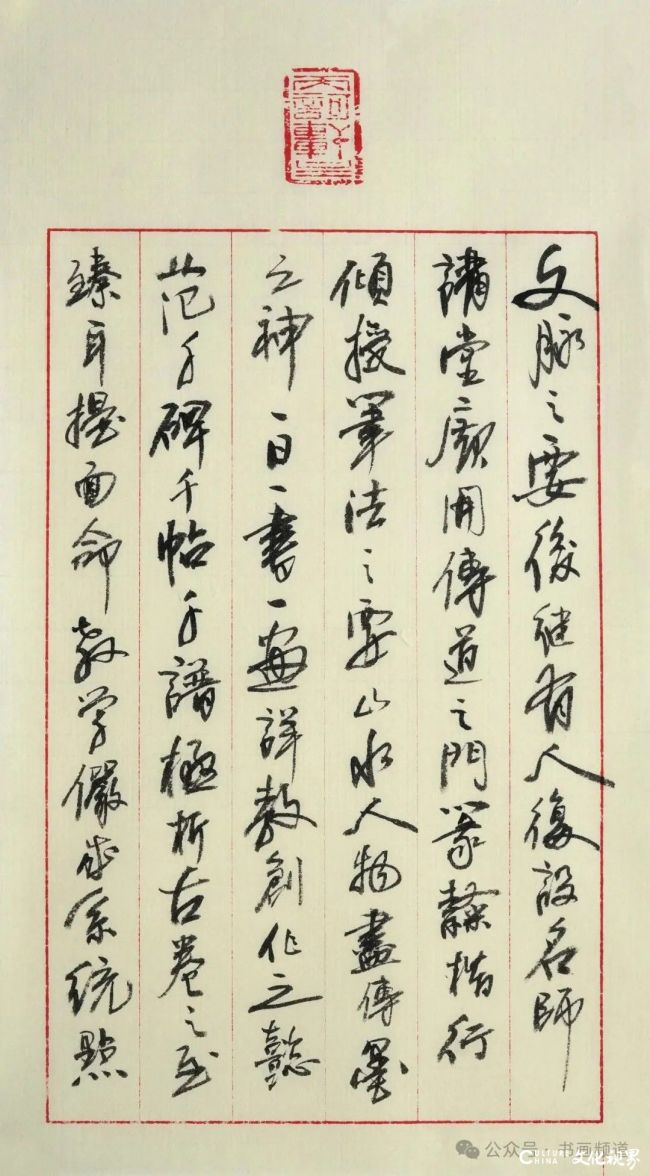 文脉之要後继有人復設名師
講堂廣開傳道之門篆隸楷行
傾授筆法之要山水人物盡傳墨
之神一日一書一畫詳教創作之懿
范千碑千帖千譜極析古卷之至
臻耳提面命教学儼成系统點
公众号 · 书画频道
CULTURE
CHINA 文化视界